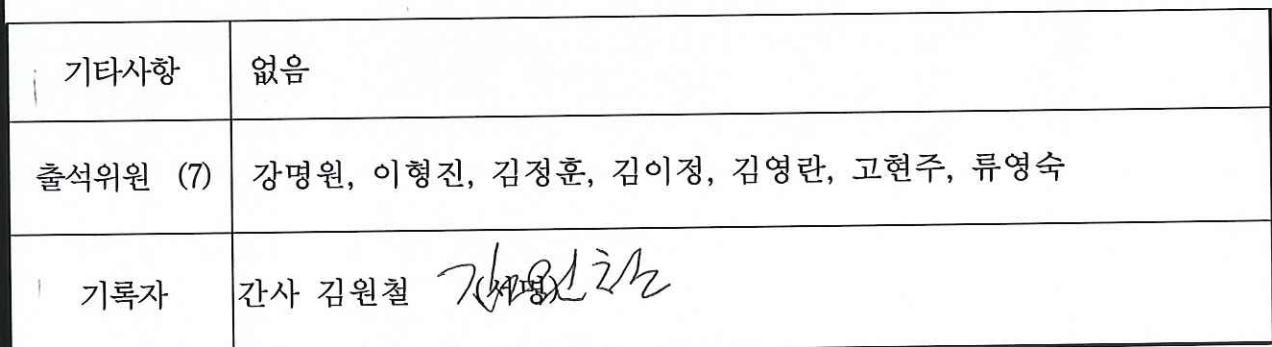 기타사항 없음
출석위원 (7) 강명원, 이형진, 김정훈, 김이정, 김영란, 고현주, 류영숙
기록자 간사 김원철 (서명)